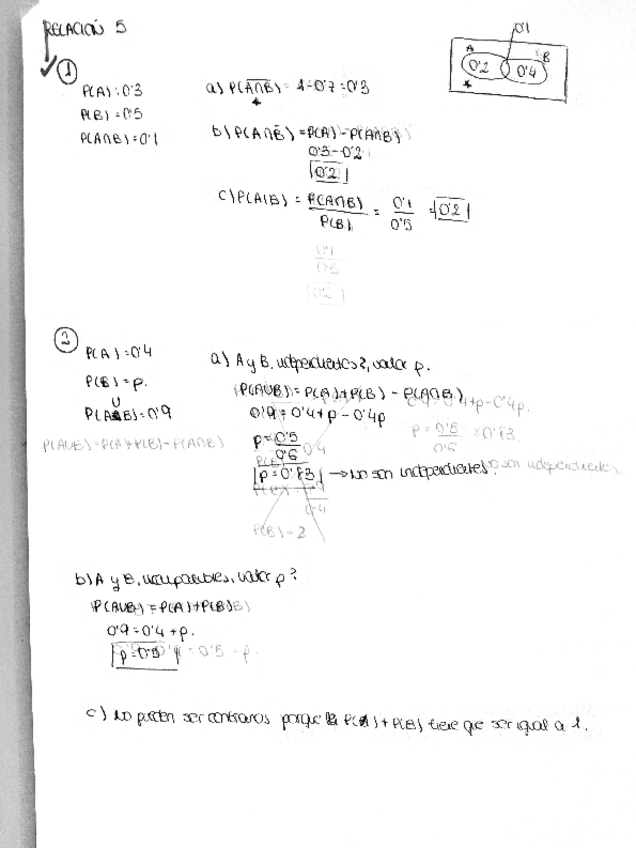 RELACIÓN 5
0'1
A
B
0'2
0'4
*
1
P(A)=0'3
P(B)=0'5
P(A∩B)=0'1
a) P(A̅∩B̅) = 1-0'7=0'3
*
b) P(A∩B̅) = P(A) - P(A∩B)
0'3-0'2
0'2
c) P(A|B) = P(A∩B)/P(B) = 0'1/0'5 = 0'2
0'1
0'5
0'2
2
P(A)=0'4
P(B)=p.
P(A∪B)=0'9
P(A∪B)=P(A)+P(B)-P(A∩B)
a) A y B, independientes?, valor p.
P(A∪B)=P(A)+P(B) - P(A∩B)
0'9=0'4+p-0'4p
0'9=0'4+p-0'4p.
p=0'5/0'6
p=0'5/0'6=0'83.
p=0'83 → No son independientes.
0'4
P(B)=2
b) A y B, incompatibles, valor p?
P(A∪B)=P(A)+P(B)
0'9=0'4+p.
p=0'5
=0'5=p.
c) No pueden ser contrarios porque P(A)+P(B) tiene que ser igual a 1.